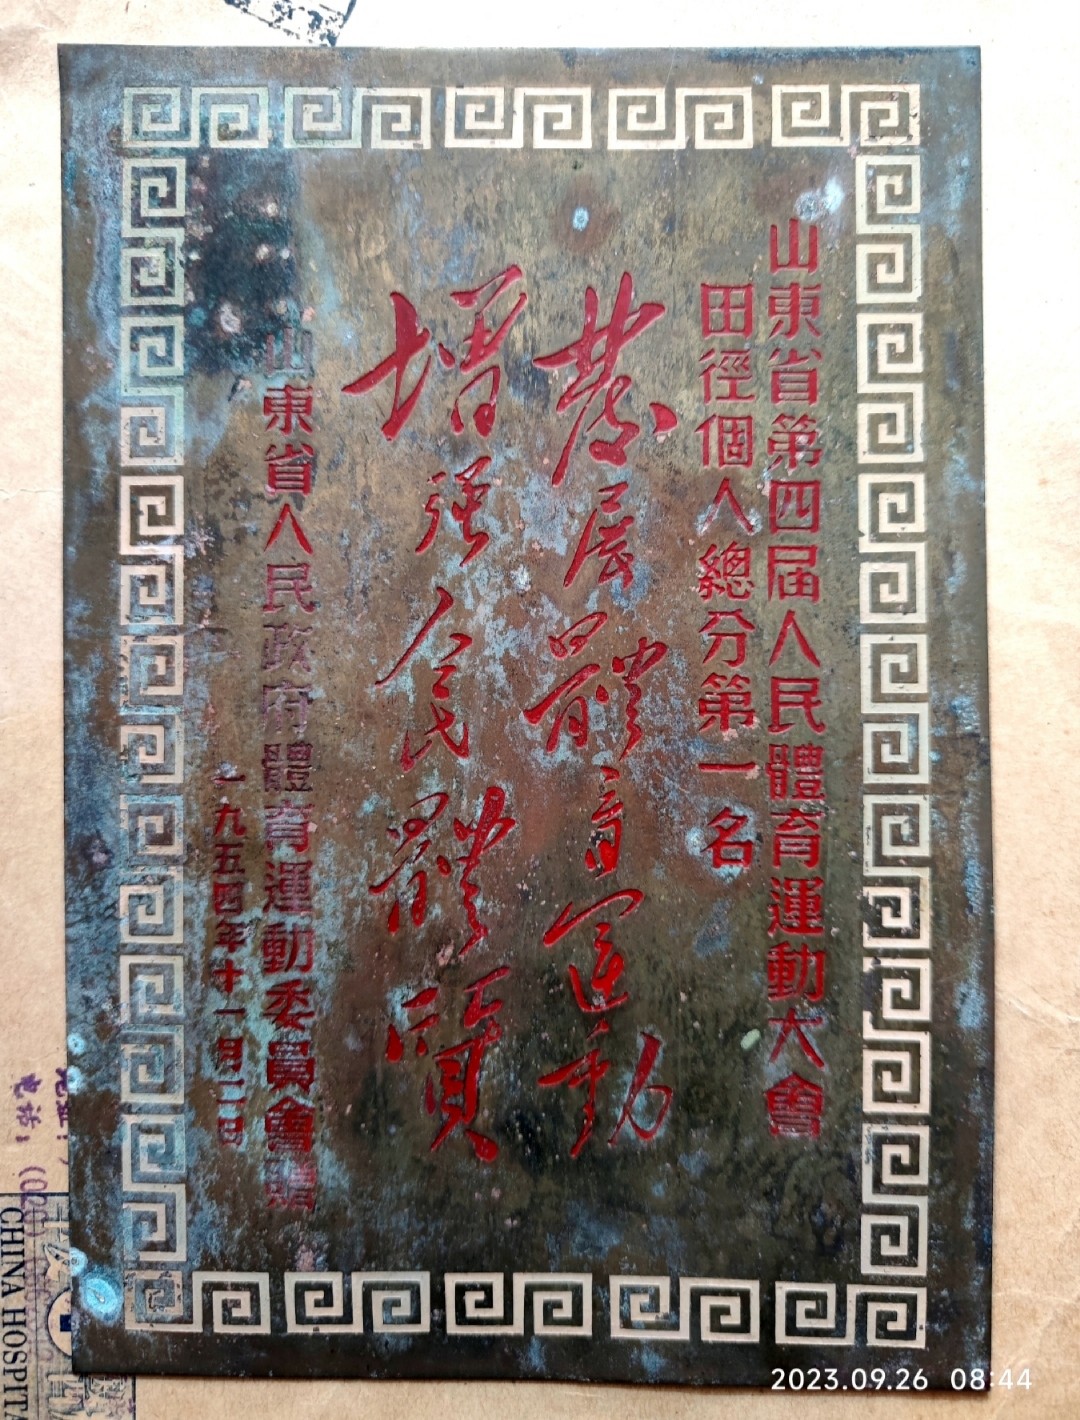 山東省第四届人民體育運動大會
田徑個人總分第一名
發展體育運動
增强人民體質
山東省人民政府體育運動委員會贈
一九五四年十一月二日
CHINA HOSPITA
2023.09.26 08:44